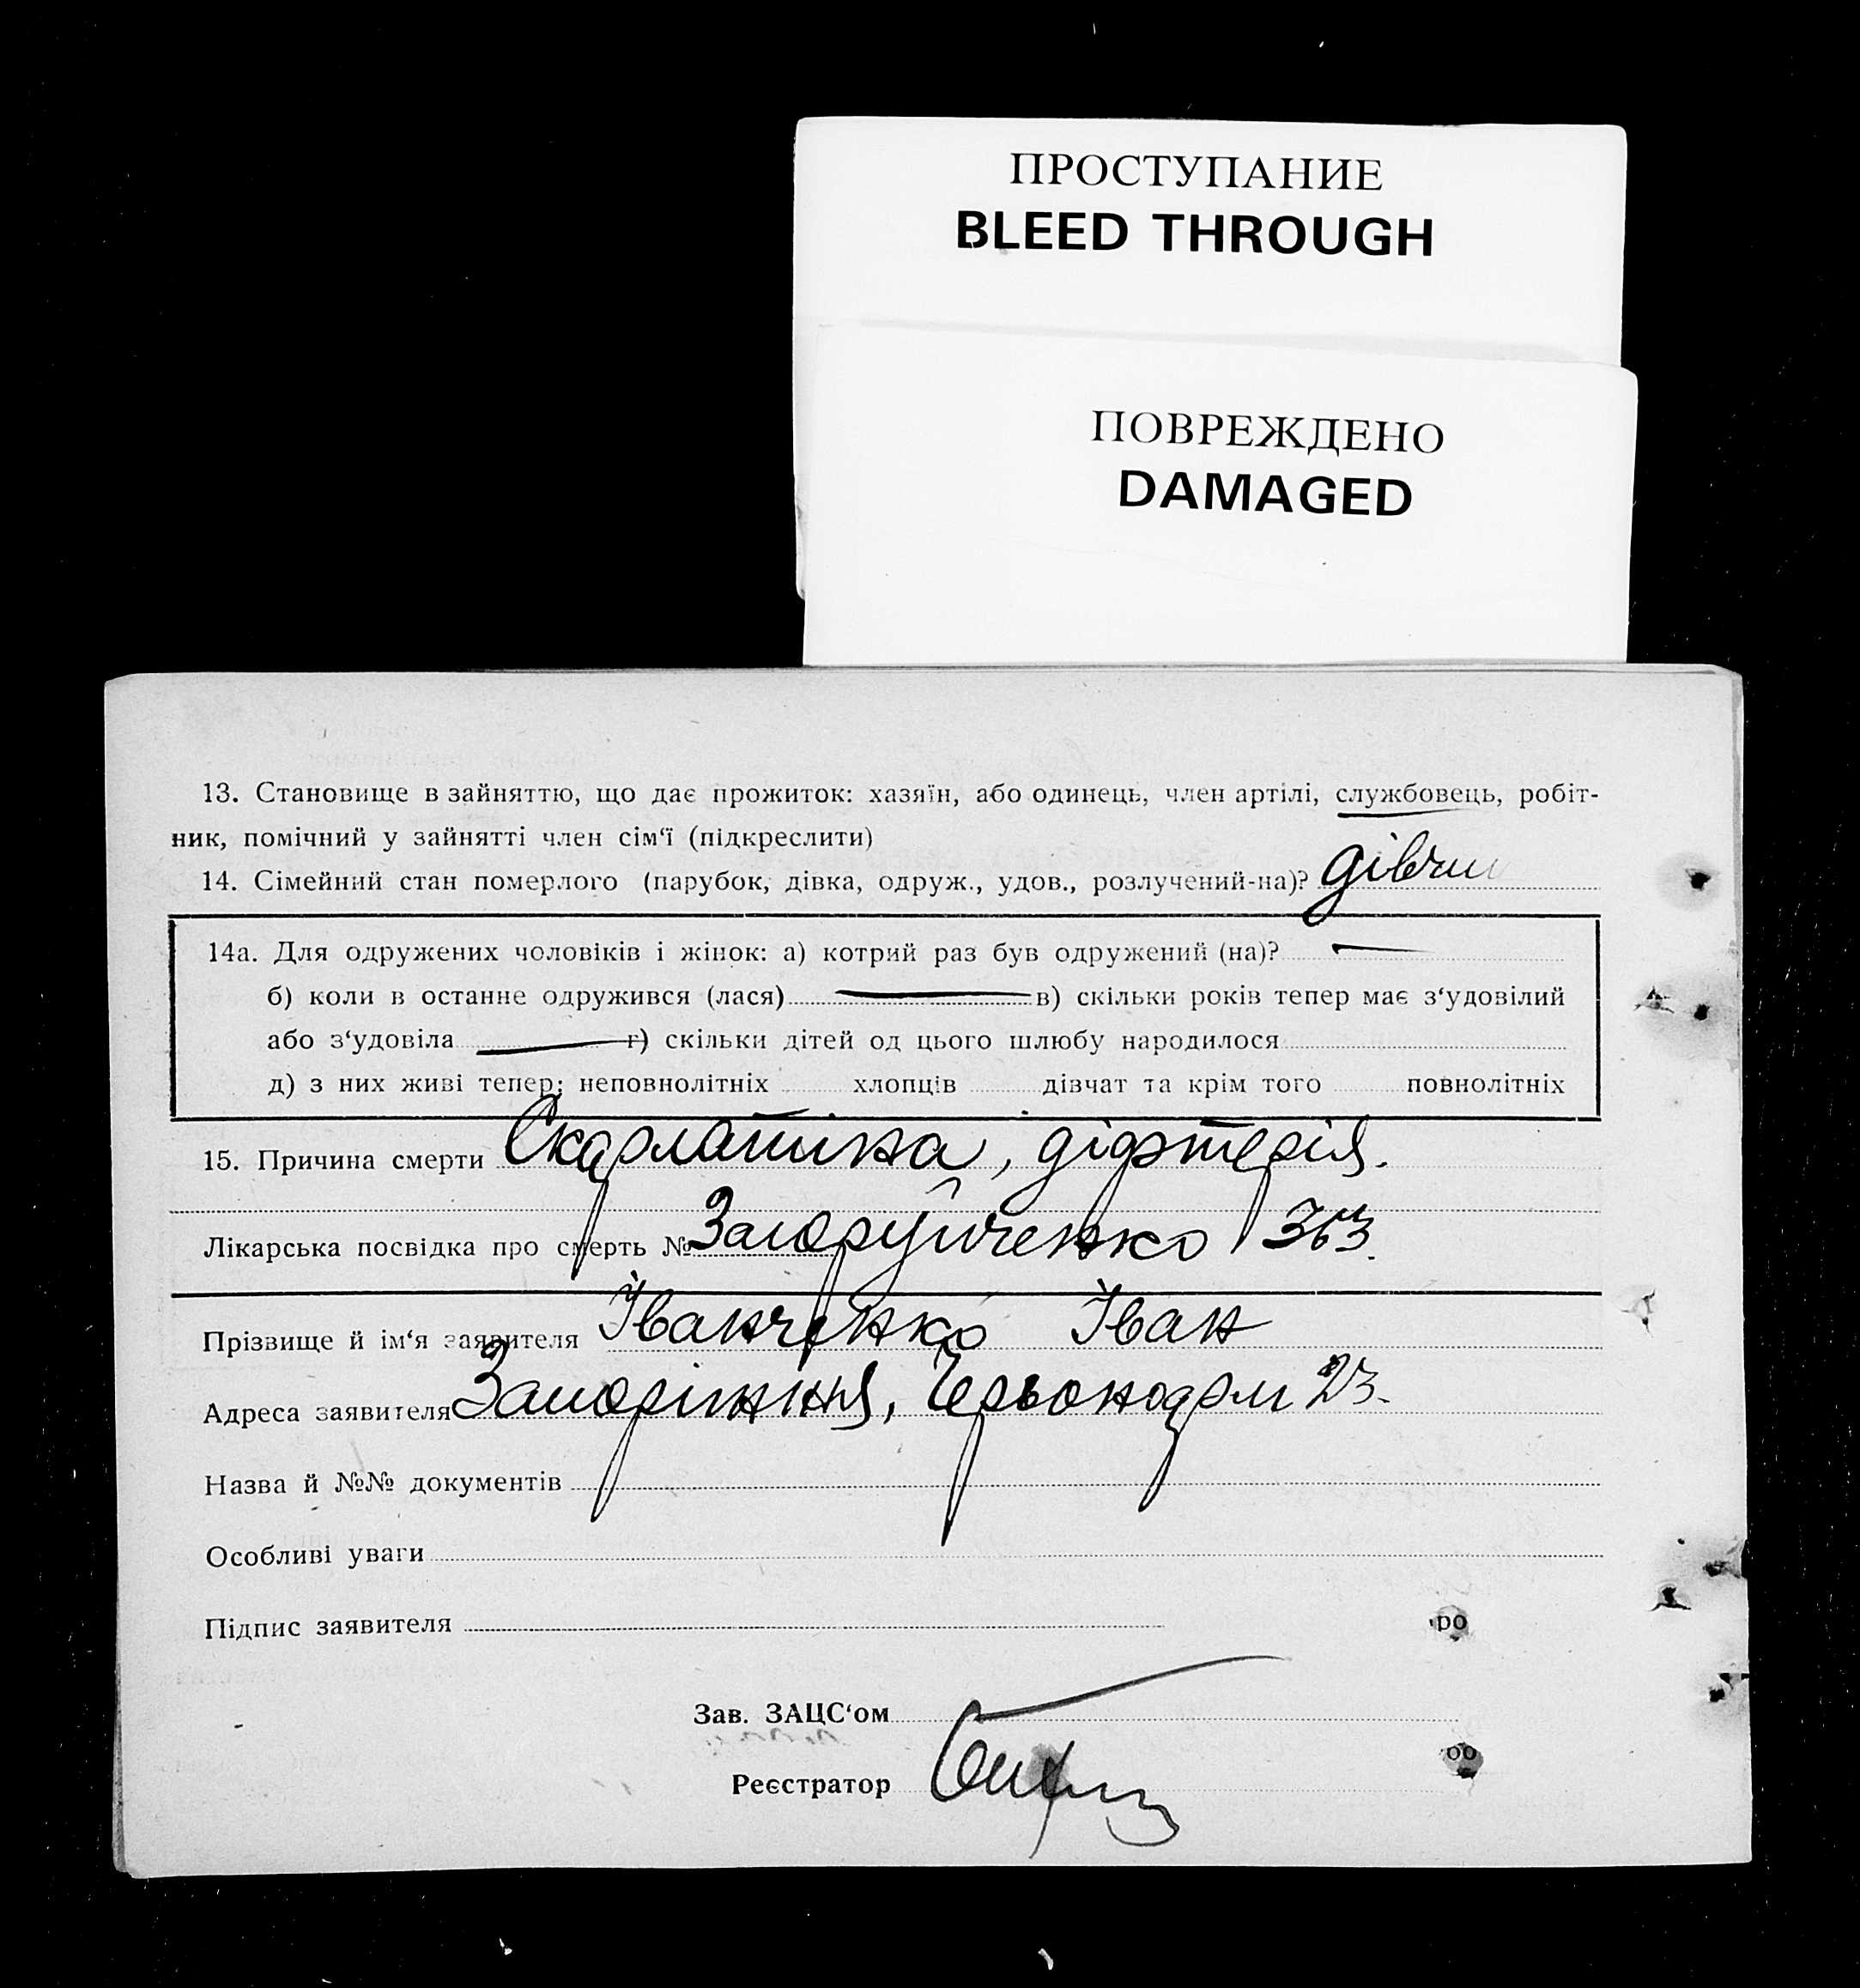 ПРОСТУПАНИЕ
BLEED THROUGH
ПОВРЕЖДЕНО
DAMAGED
13. Становище в зайняттю, що дає прожиток: хазяїн, або одинець, член артілі, службовець, робіт-
ник, помічний у зайнятті член сім‘ї (підкреслити)
14. Сімейний стан померлого (парубок, дівка, одруж., удов., розлучений-на)? дівчи
14а. Для одружених чоловіків і жінок: а) котрий раз був одружений (на)?
б) коли в останнє одружився (лася) в) скільки років тепер має з‘удовілий
або з‘удовіла г) скільки дітей од цього шлюбу народилося
д) з них живі тепер: неповнолітніх хлопців дівчат та крім того повнолітніх
15. Причина смерти Скарлатіна, діфтерія.
Лікарська посвідка про смерть № Загоруйченко 363.
Прізвище й ім‘я заявителя Іванченко Іван
Адреса заявителя Запоріжжя, 23.
Назва й №№ документів
Особливі уваги
Підпис заявителя
ро
Зав. ЗАЦС‘ом
оо
Реєстратор